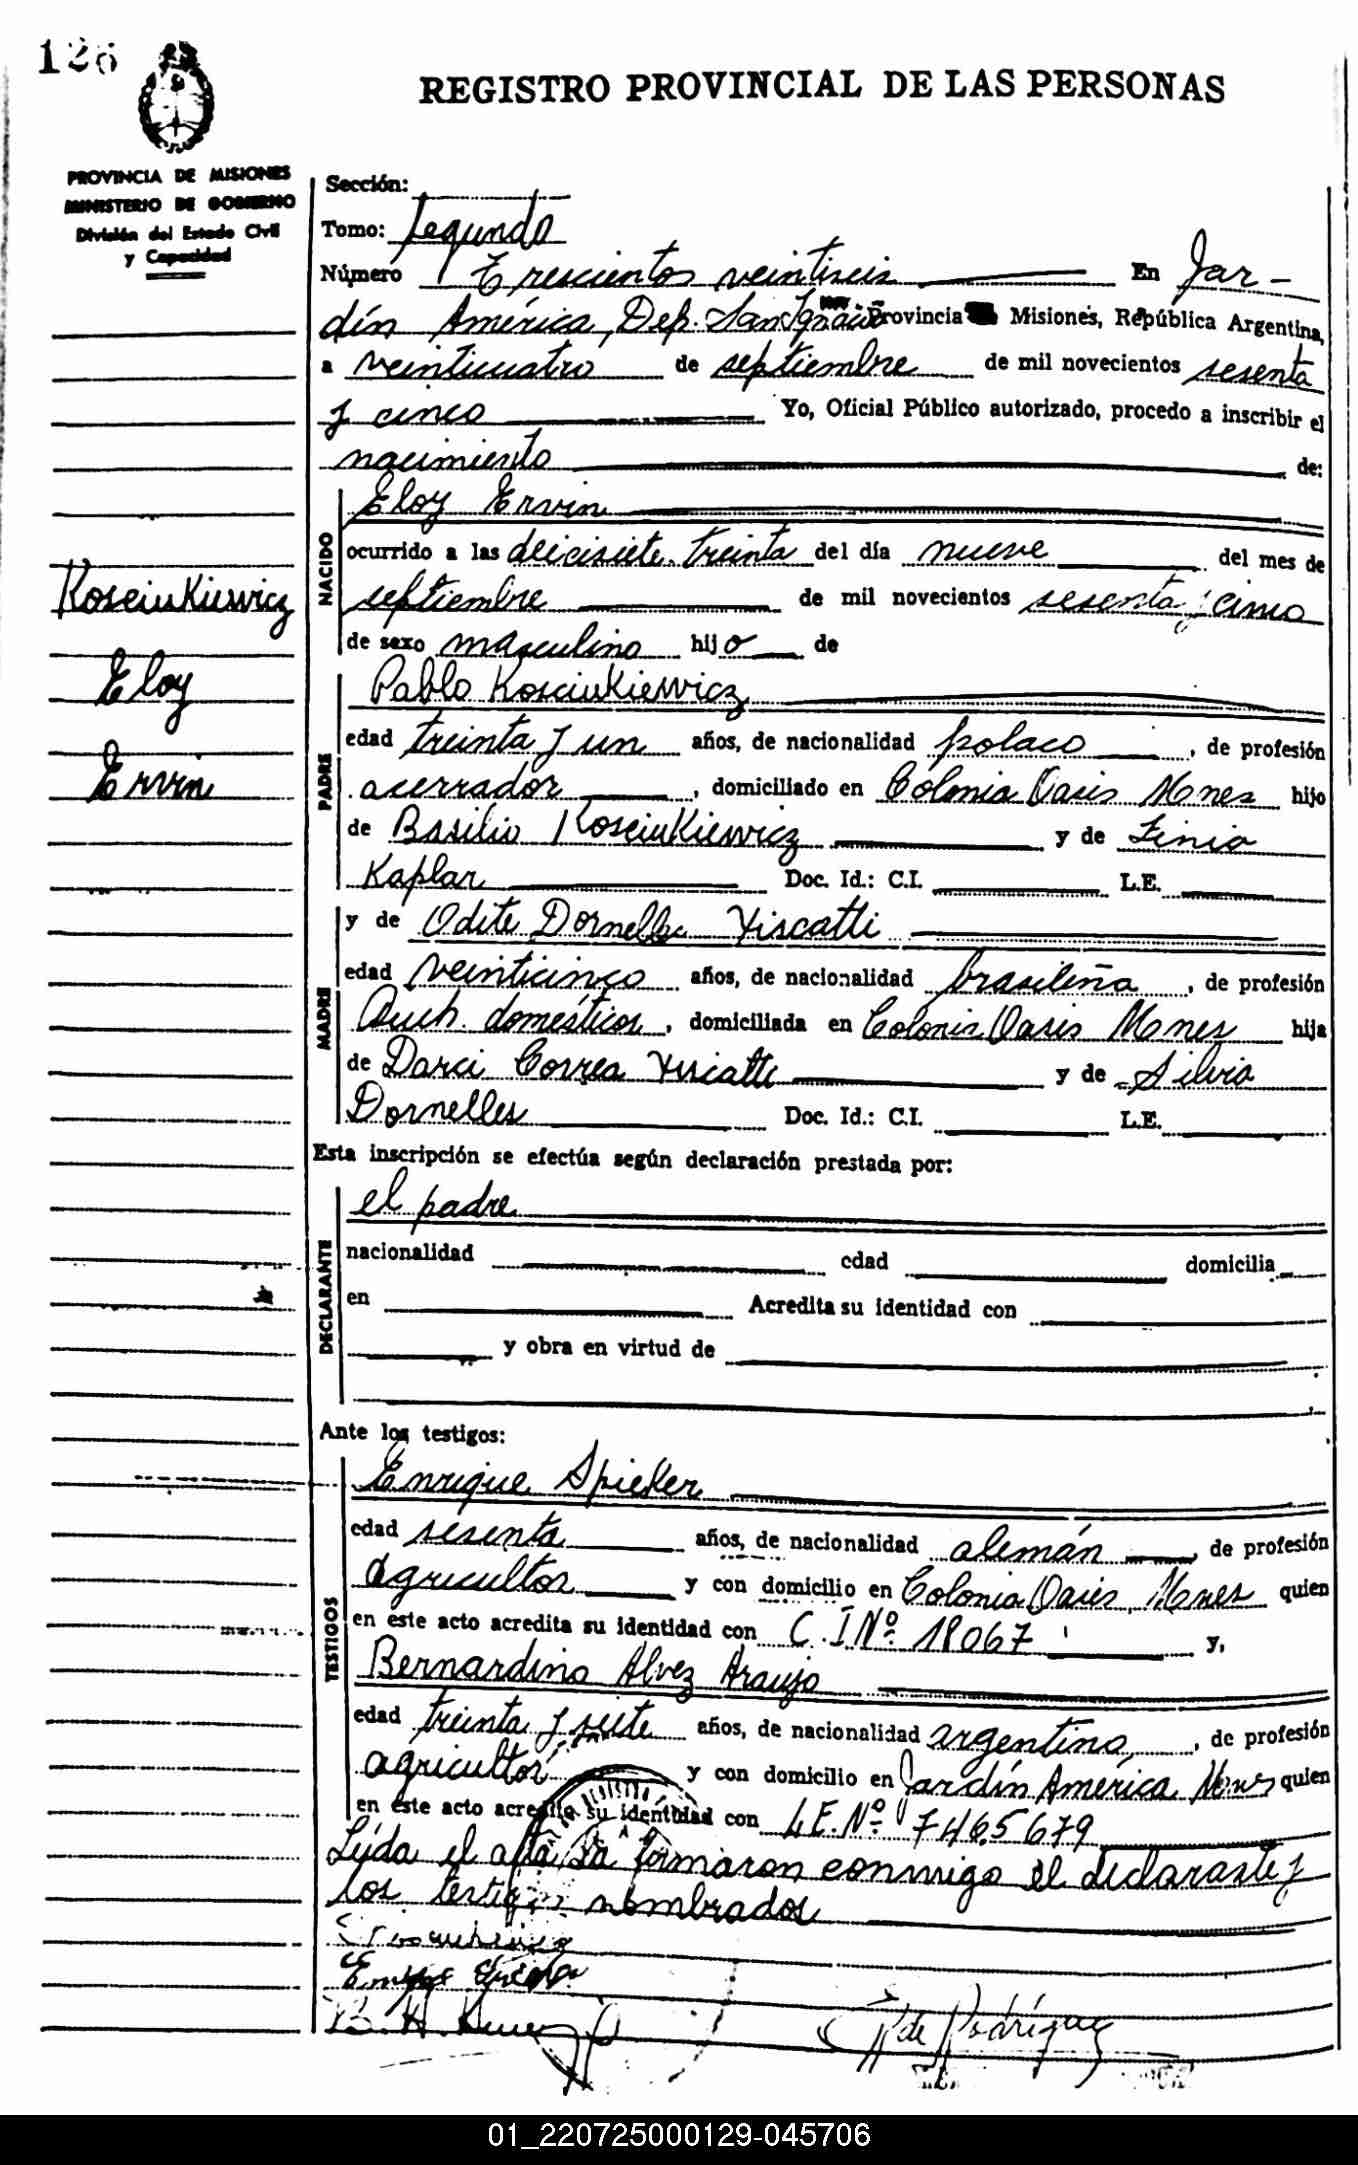 126
REGISTRO PROVINCIAL DE LAS PERSONAS
PROVINCIA DE MISIONES
MINISTERIO DE GOBIERNO
División del Estado Civil
y Capacidad
Sección:
Tomo: Segundo
Número Trescientos veintiseis En Jar-
dín América, Dep. San Ignacio Provincia Misiones, República Argentina,
a veinticuatro de septiembre de mil novecientos sesenta
y cinco Yo, Oficial Público autorizado, procedo a inscribir el
nacimiento de:
NACIDO
Eloy Ervin
ocurrido a las deicisiete treinta del día nueve del mes de
septiembre de mil novecientos sesenta y cinco
de sexo masculino hijo de
Kosciukiewicz
Eloy
Ervin
PADRE
Pablo Kosciukiewicz
edad treinta y un años, de nacionalidad polaco, de profesión
acerrador, domiciliado en Colonia Oasis Mnes hijo
de Basilio Kosciukiewicz y de Zinia
Kaplar Doc. Id.: C.I. L.E.
MADRE
y de Odite Dornelles Viscatti
edad veinticinco años, de nacionalidad brasileña, de profesión
Queh. domésticos, domiciliada en Colonia Oasis Mnes hija
de Darci Correa Viscatti y de Silvia
Dornelles Doc. Id.: C.I. L.E.
Esta inscripción se efectúa según declaración prestada por:
DECLARANTE
el padre
nacionalidad edad domicilia
en Acredita su identidad con
y obra en virtud de
Ante los testigos:
TESTIGOS
Enrique Spieker
edad sesenta años, de nacionalidad alemán, de profesión
agricultor y con domicilio en Colonia Oasis, Mnes quien
en este acto acredita su identidad con C.I Nº 18067 y,
Bernardino Alvez Araujo
edad treinta y siete años, de nacionalidad argentino, de profesión
agricultor y con domicilio en Jardín América Mnes quien
en este acto acredita su identidad con L.E. Nº 7465679
Leída el acta la firmaron conmigo el declarante y
los testigos nombrados
de Rodríguez
01_220725000129-045706